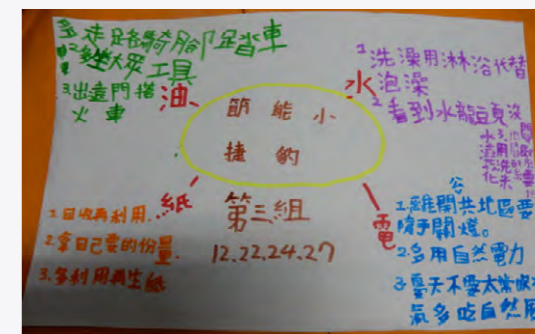 多走路騎腳踏車
2.多坐大眾工具
3.出遠門搭
火車
油
節能小
捷豹
第三組
12.22.24.27
水
1.洗澡用淋浴代替
泡澡
2.看到水龍頭沒
關
紙
1.回收再利用.
2.拿自己要的份量.
3.多利用再生紙
電
1.離開公共地區要
隨手關燈。
2.多用自然電力
3.夏天不要太常吹冷
氣多吃自然風